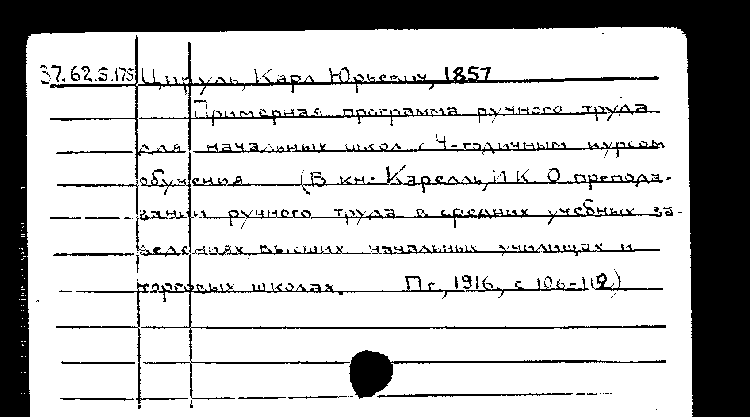 37.62.5.175 Цируль, Карл Юрьевич, 1857
Примерная программа ручного труда
для начальных школ с 4-годичным курсом
обучения (В кн. Карелль, И.К. О препода-
вании ручного труда в средних учебных за-
ведениях высших начальных училищах и
торговых школах. Пг., 1916, с 106-112)